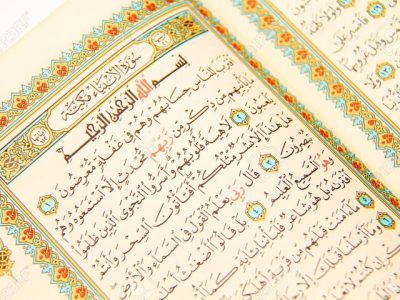 سُورَةُ الْأَنْبِيَاءِ مَكِّيَّةٌ
بِسْمِ اللَّهِ الرَّحْمَٰنِ الرَّحِيمِ
اقْتَرَبَ لِلنَّاسِ حِسَابُهُمْ وَهُمْ فِي غَفْلَةٍ مُعْرِضُونَ
مَا يَأْتِيهِمْ مِنْ ذِكْرٍ مِنْ رَبِّهِمْ مُحْدَثٍ إِلَّا اسْتَمَعُوهُ وَهُمْ
يَلْعَبُونَ ٢ لَاهِيَةً قُلُوبُهُمْ وَأَسَرُّوا النَّجْوَى الَّذِينَ ظَلَمُوا
هَلْ هَٰذَا إِلَّا بَشَرٌ مِثْلُكُمْ أَفَتَأْتُونَ السِّحْرَ وَأَنْتُمْ
تُبْصِرُونَ ٣ قَالَ رَبِّي يَعْلَمُ الْقَوْلَ فِي السَّمَاءِ وَالْأَرْضِ
وَهُوَ السَّمِيعُ الْعَلِيمُ ٤ بَلْ قَالُوا أَضْغَاثُ
افْتَرَاهُ بَلْ هُوَ شَاعِرٌ فَلْيَأْتِنَا بِآيَةٍ كَمَا
مَا آمَنَتْ قَبْلَهُمْ مِنْ قَرْيَةٍ
وَمَا أَرْسَلْنَا قَبْلَكَ إِلَّا